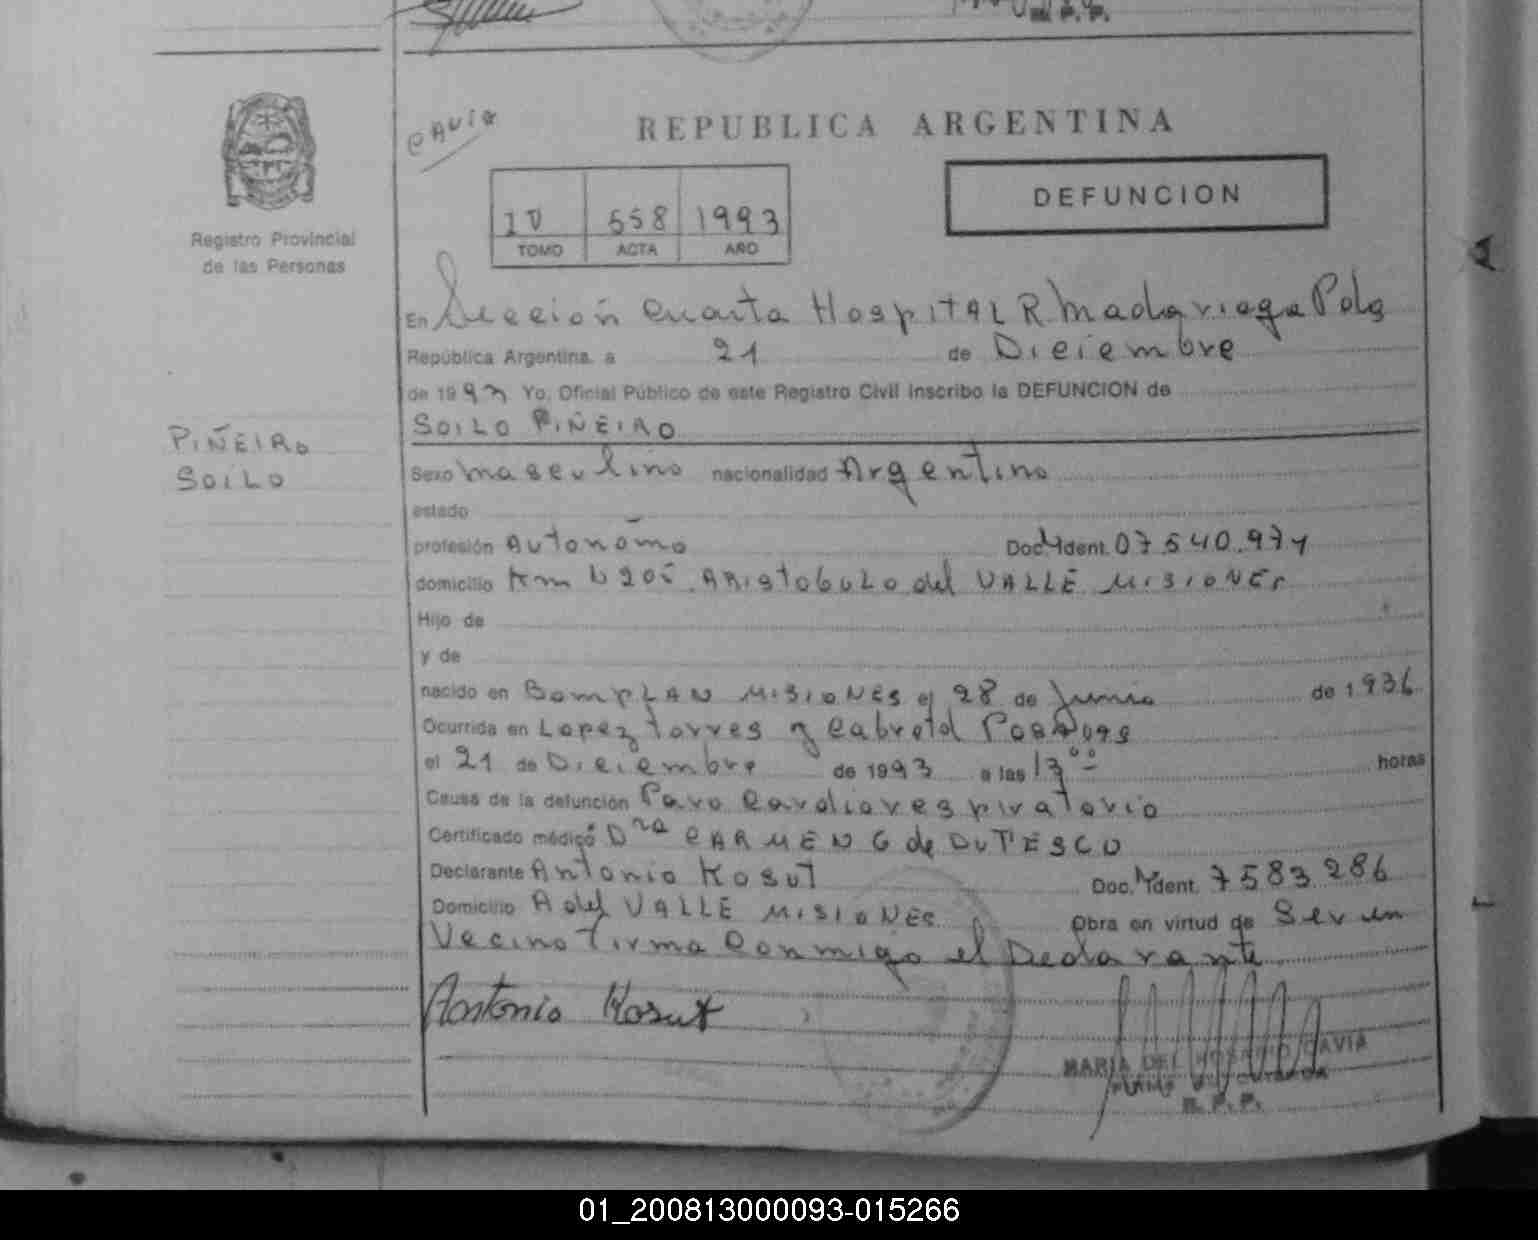 CAVIA
REPUBLICA ARGENTINA
DEFUNCION
IV 558 1993
TOMO ACTA AÑO
Registro Provincial
de las Personas
En Sección Cuarta Hospital R Madariaga Pdas
República Argentina, a 21 de Diciembre
de 1993 Yo, Oficial Público de este Registro Civil inscribo la DEFUNCION de
SOILO PIÑEIRO
PIÑEIRO
SOILO
Sexo masculino nacionalidad Argentino
estado
profesión Autonomo Doc. Ident. 07540.974
domicilio Km 1205 ARISTOBULO del VALLE MISIONES
Hijo de
y de
nacido en BOMPLAN MISIONES el 28 de Junio de 1936
Ocurrida en Lopez Torres y Cabred Posadas
el 21 de Diciembre de 1993 a las 13 00 horas
Causa de la defunción Paro Cardiorespiratorio
Certificado médico Dra CARMEN G de DUTESCO
Declarante Antonio Kosut Doc. Ident. 7583286
Domicilio A del VALLE MISIONES Obra en virtud de Ser un
Vecino Firma Conmigo el Declarante
Antonio Kosut
MARIA DEL ROSARIO CAVIA
R. P. P.
01_200813000093-015266